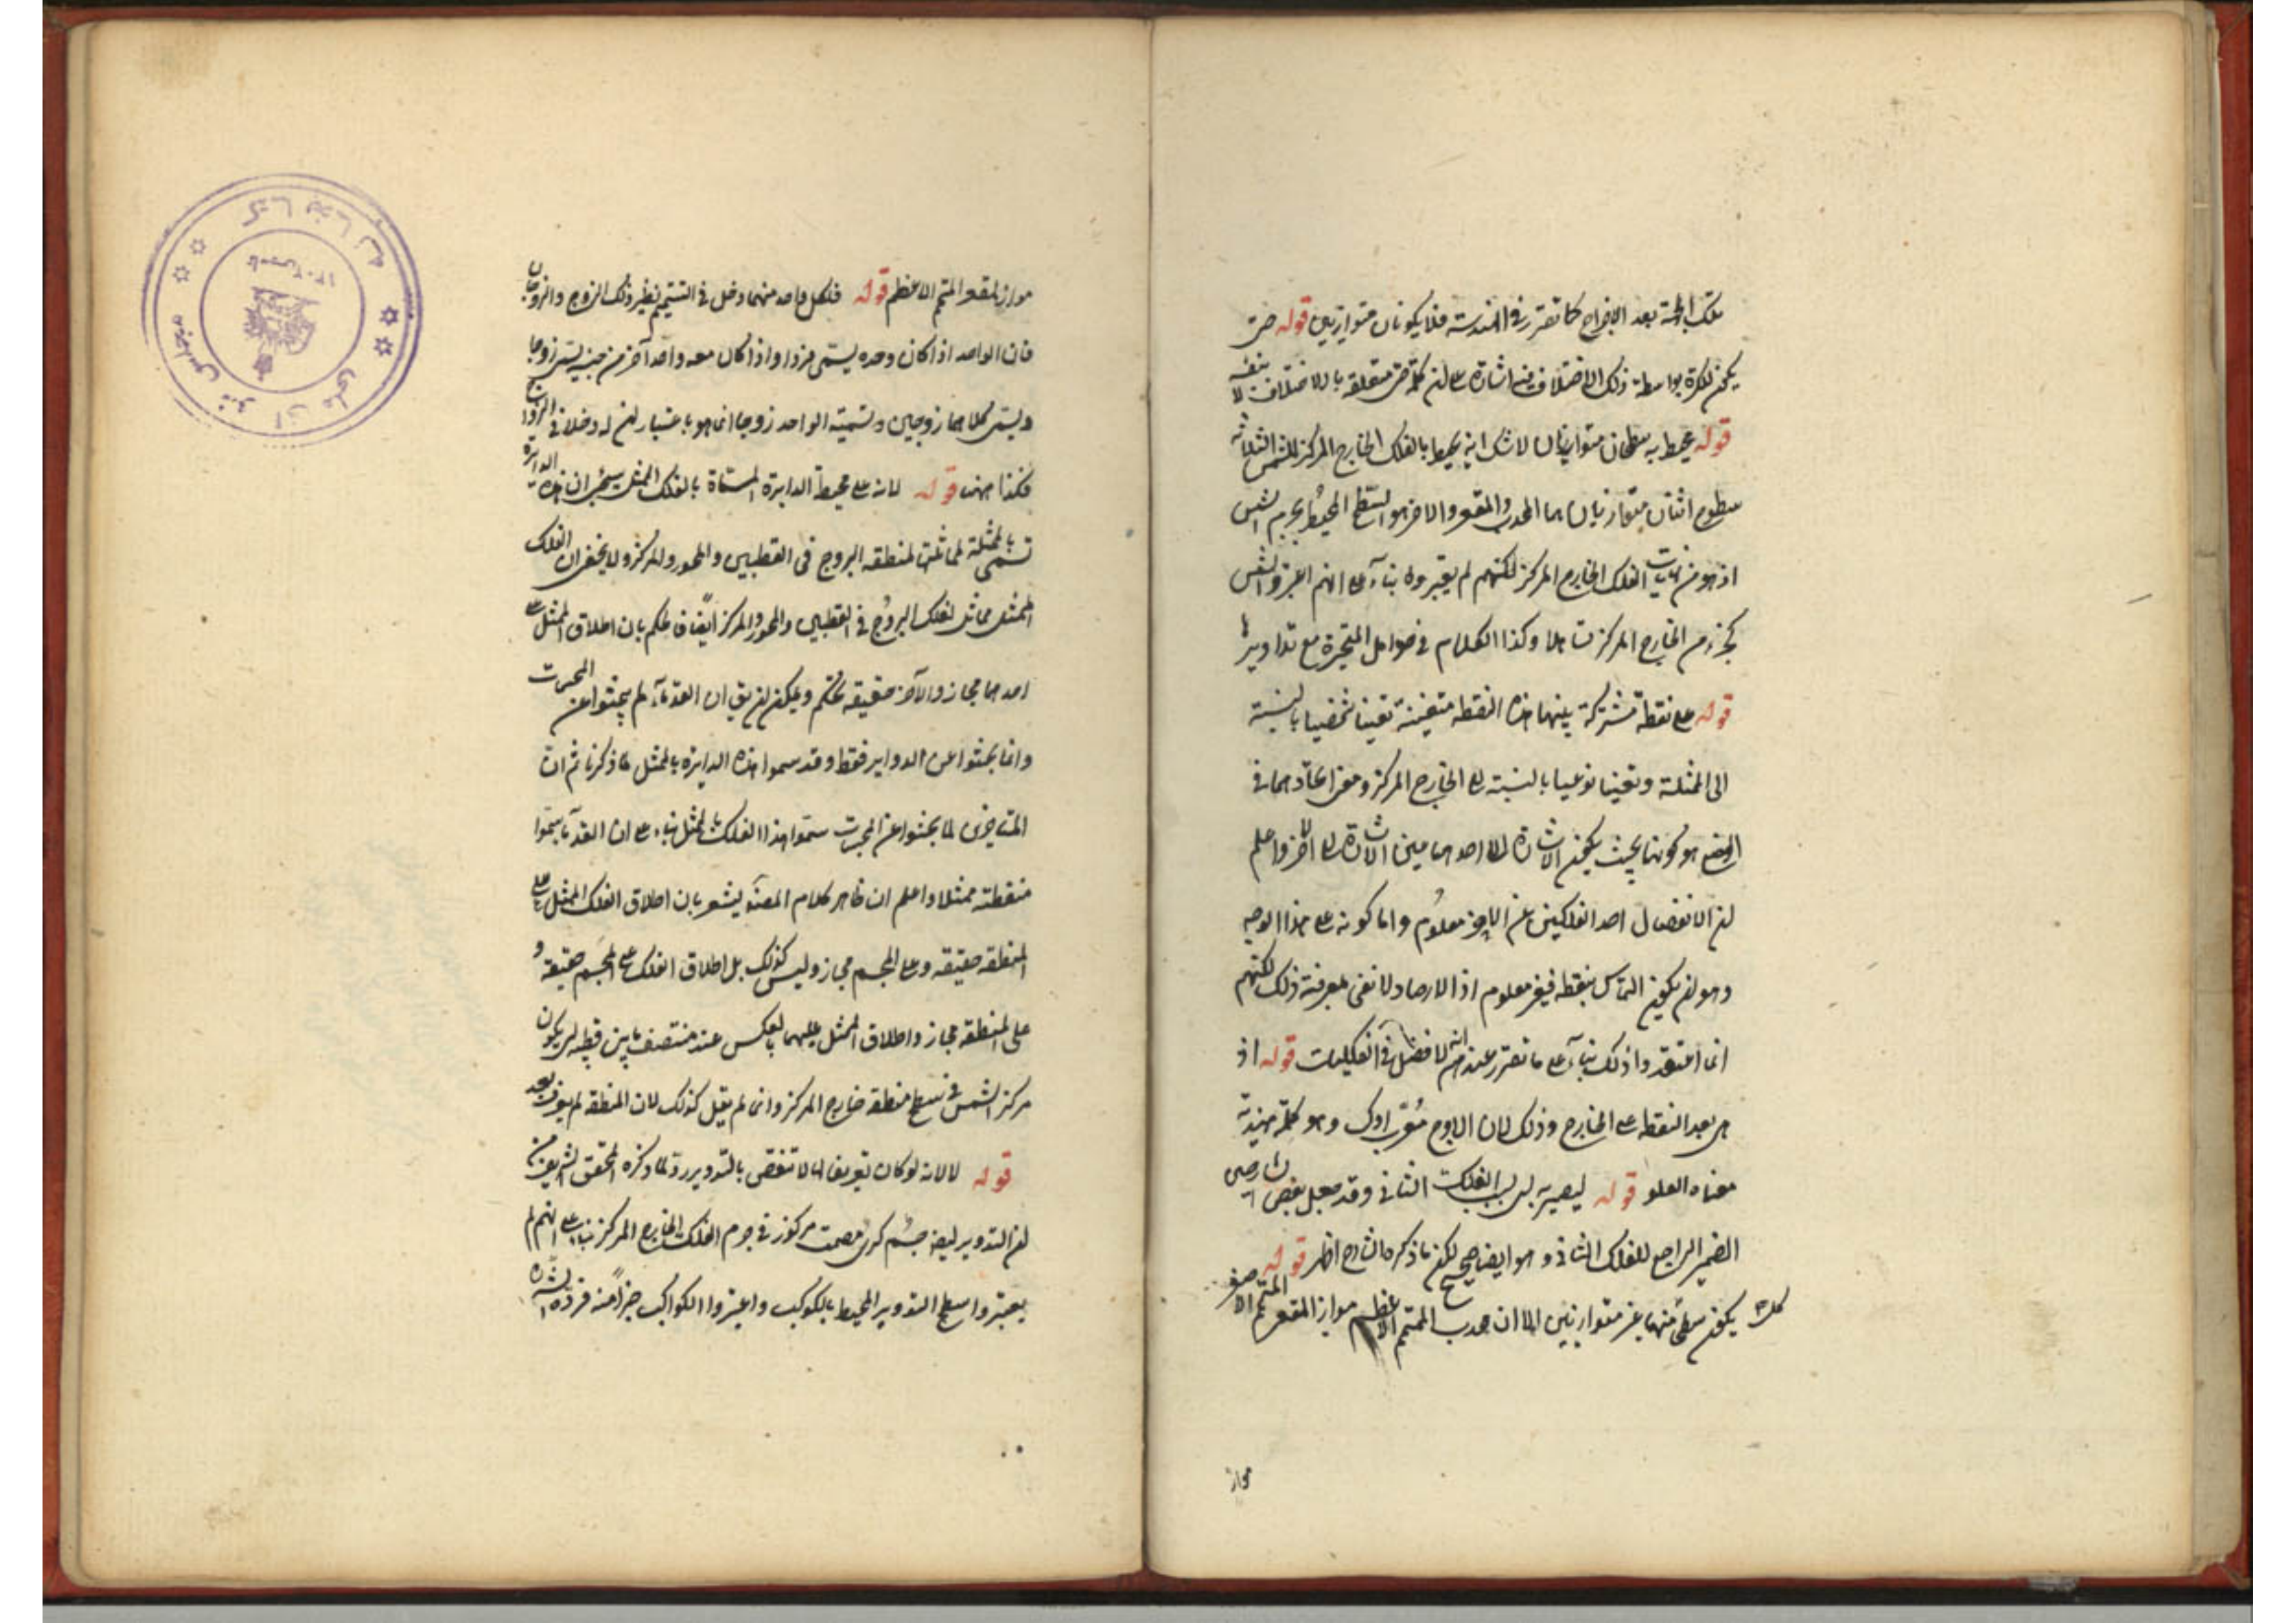 تلك الجهة بعد الاخراج كما تقرر في الهندسة فلا يكونان متوازيين قوله حتى
يكون للكرة بواسطة ذلك الاختلاف فيه اشارة على ان كلمة حتى متعلقة بالاختلاف لا بنفيه
قوله يحيط به سطحان متوازيان لا شك انه يحيط بالفلك الخارج المركز للشمس ثلاثة
سطوح اثنان متوازيان هما المحدب والمقعر والاخر هو السطح المحيط بجرم الشمس
اذ هو من نهايات الفلك الخارج المركز لكنهم لم يعتبروه بناء على انهم اعتبروا الشمس
كجزء من الخارج المركز تساهلا وكذا الكلام في حوامل المتحيرة مع تداويرها
قوله على نقطة مشتركة بينهما هذه النقطة متعينة تعينا شخصيا بالنسبة
الى الممثلة وتعينا نوعيا بالنسبة الى الخارج المركز ومعنى اتحادهما في
الوضع هو كونهما بحيث يكون الاشارة الى احدهما عين الاشارة الى الاخر واعلم
ان الانفصال احد الفلكين عن الاخر معلوم واما كونه على هذا الوجه
وهو ان يكون التماس بنقطة فغير معلوم اذ الارصاد لا تفي بمعرفة ذلك لكنهم
انما اعتقدوا ذلك بناء على ما تقرر عندهم انه لا فضل في الفلكيات قوله اذ
هي بعد النقطة على الخارج وذلك لان الاوج معرب اوك وهو كلمة هندية
معناه العلو قوله ليصير به اى بسبب الفلك الثاني وقد جعل بعض الشارحين
الضمير الراجع للفلك الثاني وهو ايضا صحيح لكن ما ذكره الشارح اظهر قوله
كل يكون سطح منهما غير متوازيين الا ان محدب المتمم الاعظم مواز لمقعر المتمم الاصغر
مواز
مواز لمقعر المتمم الاعظم قوله فلكل واحد منهما دخل في التتميم نظير ذلك الزوج والزوجان
فان الواحد اذا كان وحده يسمى فردا واذا كان معه واحد آخر من جنسه يسمى زوجا
ويسمى كلاهما زوجين وتسمية الواحد زوجا انما هو باعتبار ان له دخلا في الازدواج
فكذا ههنا قوله لانه على محيط الدايرة المسماة بالفلك الممثل سيجئ ان هذه الدايرة
تسمى بالممثلة لمماثلتها لمنطقة البروج في القطبين والمحور والمركز ولا يخفى ان الفلك
الممثل مماثل لفلك البروج في القطبين والمحور والمركز ايضا فالحكم بان اطلاق الممثل على
احدهما مجاز والآخر حقيقة تحكم ويمكن ان يق ان القدماء لم يبحثوا عن المجسمات
وانما بحثوا عن الدواير فقط وقد سموا هذه الدايرة بالممثل لما ذكرنا ثم ان
المتاخرين لما بحثوا عن المجسمات سموا هذا الفلك بالممثل بناء على ان القدماء سموا
منطقته ممثلا واعلم ان ظاهر كلام المصنف يشعر بان اطلاق الفلك الممثل على
المنطقة حقيقة وعلى المجسم مجاز وليس كذلك بل اطلاق الفلك على المجسم حقيقة و
على المنطقة مجاز واطلاق الممثل عليهما بالعكس عند منتصف ما بين قطبيه اى يكون
مركز الشمس في سطح منطقة خارج المركز وانما لم يقل كذلك لان المنطقة لم يعرف بعد
قوله لا لانه لو كان تعريفا لها لانتقض بالتدوير رد لما ذكره المحقق الشريف من
ان التدوير ايضا جسم كرى مصمت مركوز في جرم الفلك الخارج المركز بناء على انهم لم
يعتبروا سطح التدوير المحيط بالكوكب واعتبروا الكواكب جزأ منه فرده الش